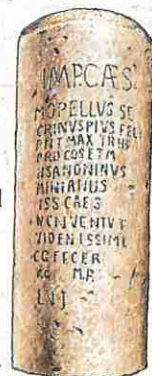 IMP.CÆS
MOPELLVS SE
CRINVSPIVS FELI
PNTMAX TRIB
PRO COS ETM
IISANONINVS
MINIANUS
ISS CAES
NCNVENTVS
VIDENISSIME
CO FECER
RO M.P.
LVI